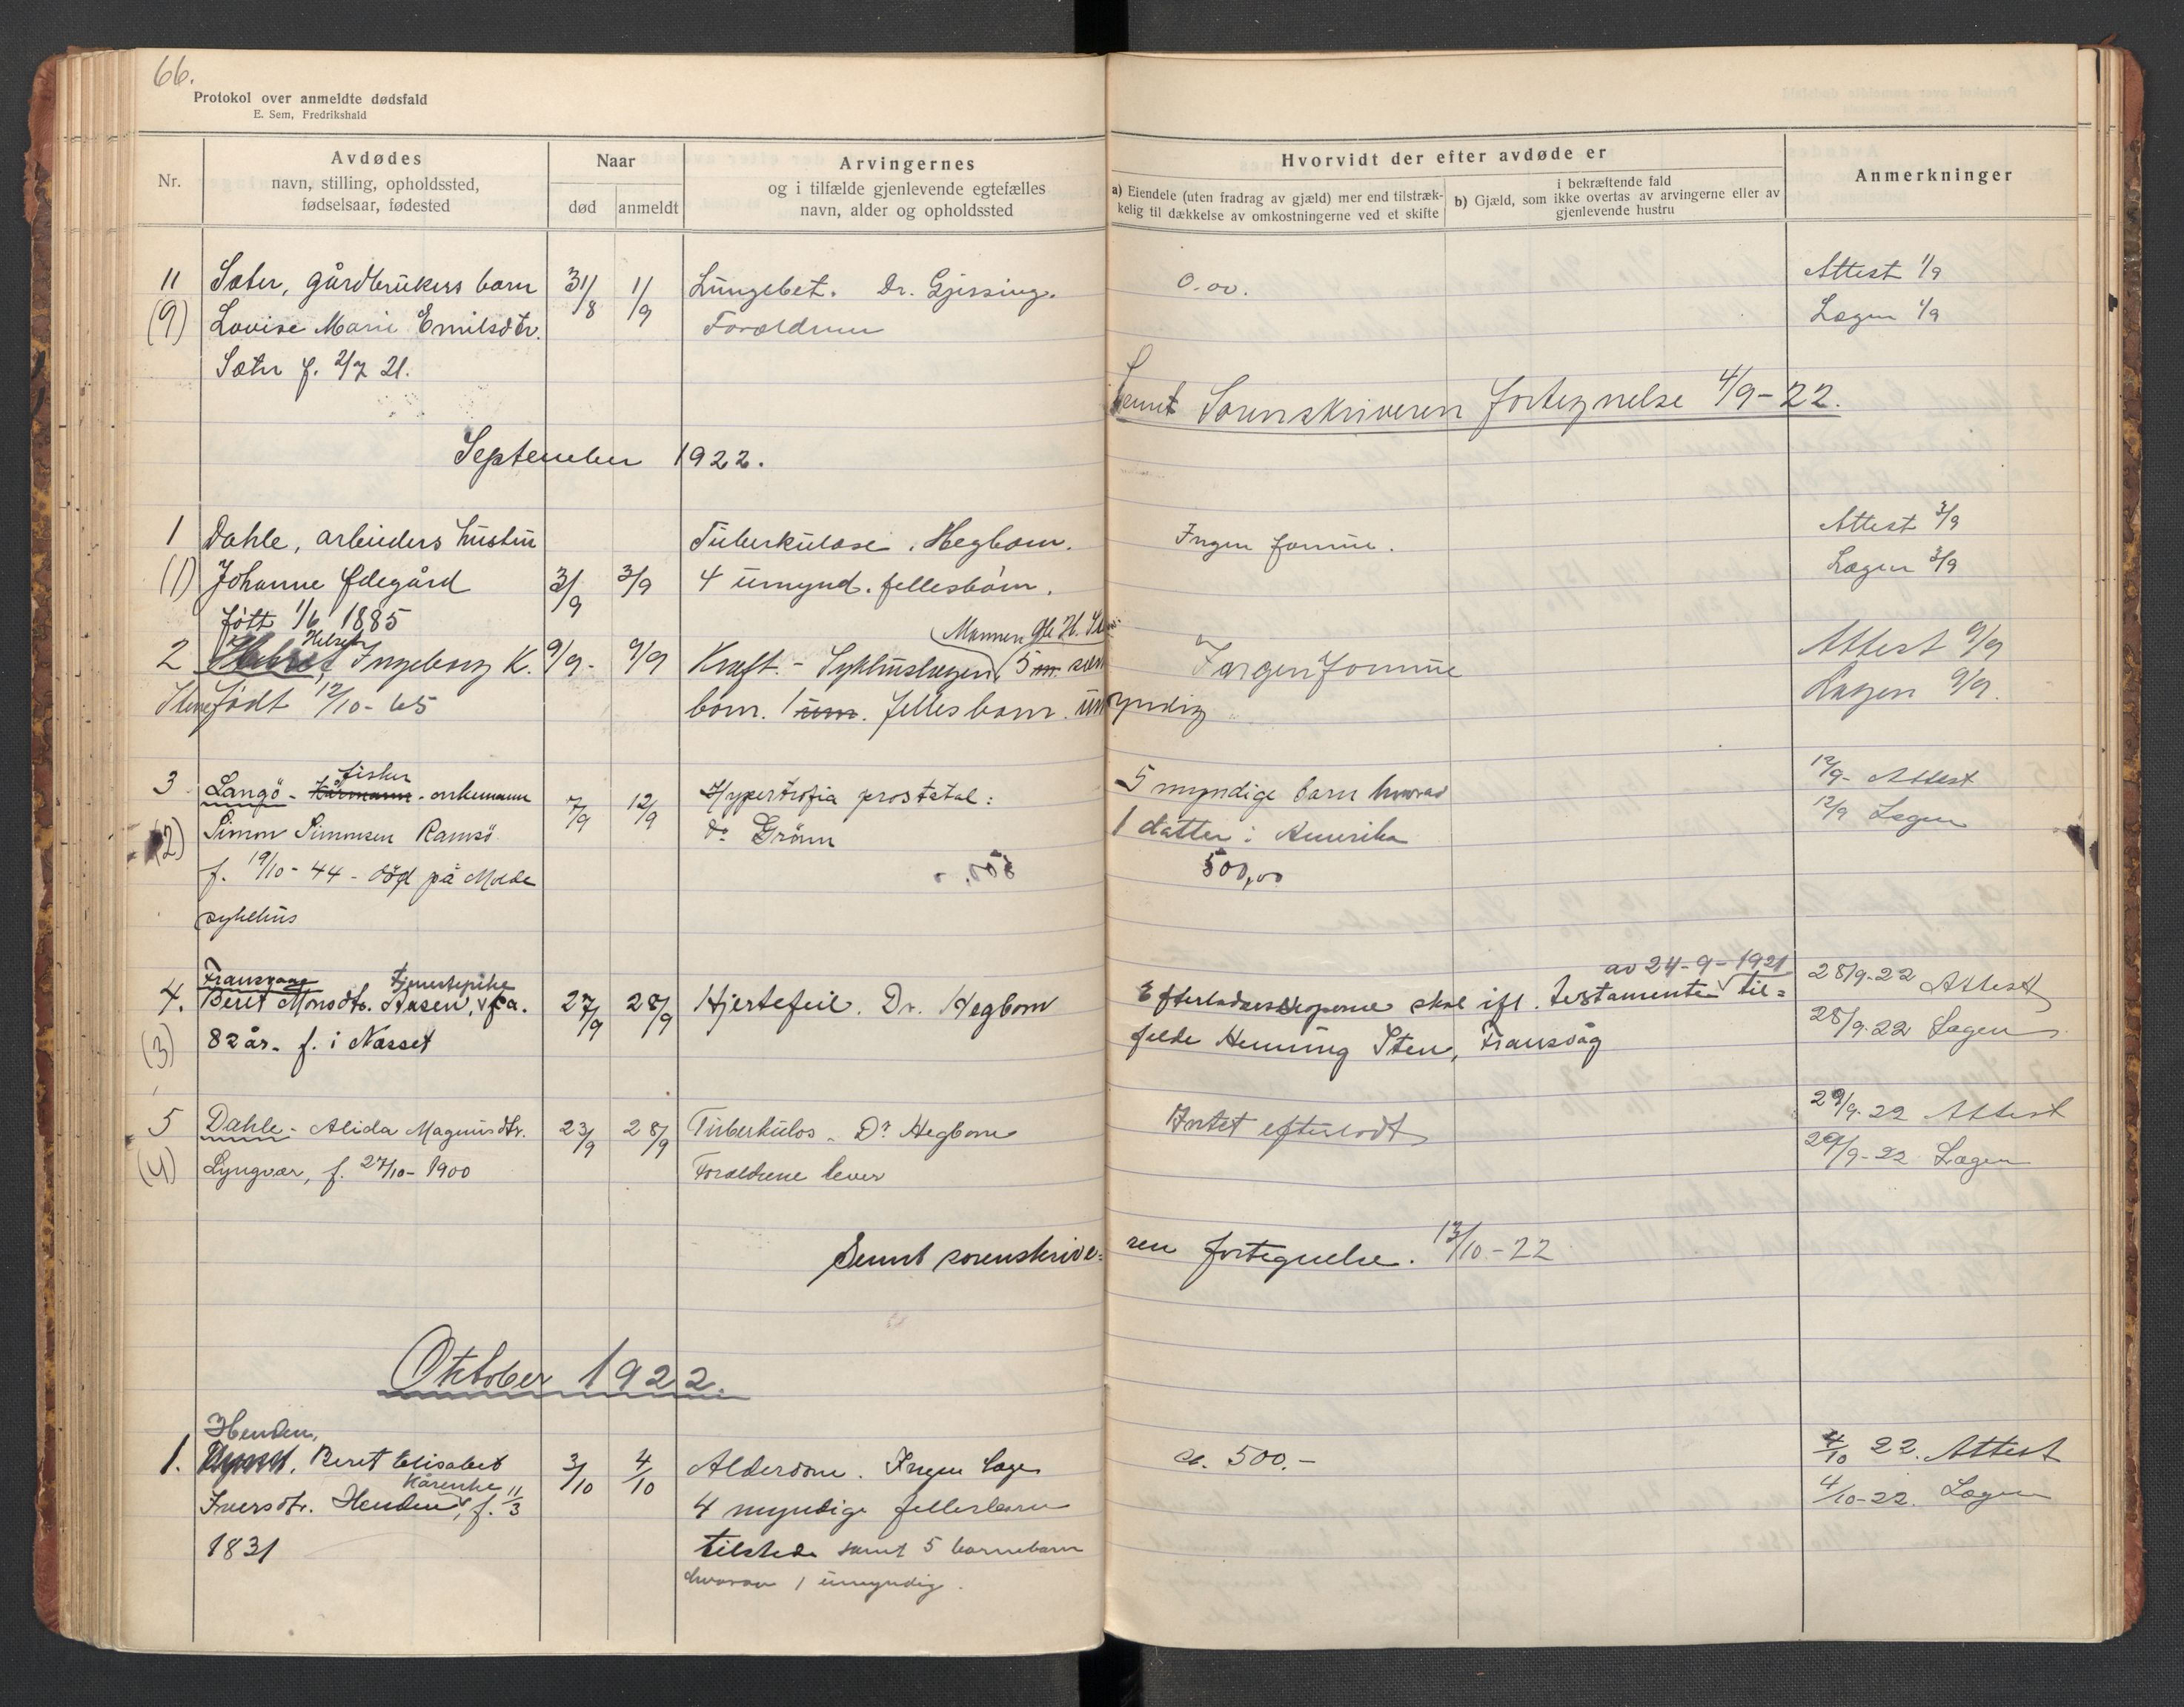 66.
Protokol over anmeldte dødsfald
E. Sem, Fredrikshald
Nr.
Avdødes
navn, stilling, opholdssted,
fødselsaar, fødested
Naar
død
anmeldt
Arvingernes
og i tilfælde gjenlevende egtefælles
navn, alder og opholdssted
Hvorvidt der efter avdøde er
a) Eiendele (uten fradrag av gjæld) mer end tilstræk-
kelig til dækkelse av omkostningerne ved et skifte
i bekræftende fald
b) Gjæld, som ikke overtas av arvingerne eller av
gjenlevende hustru
Anmerkninger
11 Sæter, gårdbrukers barn 31/8 1/9 Lungebet. Dr. Gjessing. 0.00. Attest 1/9
(9) Lovise Marie Emilsdtr. Forældrene Lægen 1/9
Sæter f. 2/7 21.
Sennt Sorenskriveren fortegnelse 4/9-22.
September 1922.
1 Dahle, arbeiders hustru Tuberkulose. Hegbom. Ingen formue. Attest 3/9
(1) Johanne Ødegård 3/9 3/9 4 umynd. fellesbørn. Lægen 3/9
født 1/6 1885
Mannen
2 Ingeborg K. 9/9- 9/9 Kræft. - Sykhuslægen 5 Ingen formue Attest 9/9
født 12/10-65 barn. 1 um. felles barn. umyndig Lægen 9/9.
fisker
3 Langö - 7/9 12/9 Hypertrofia prostatal: 5 myndige barn hvorav 12/9- Attest
(2) Simon Simonsen Ramsö Dr Grönn 1 datter i Amerika 12/9 Lægen
f. 19/10-44 - död på Molde 500,00
sykehus
Fransvaag Tjenestepike av 24-9-1921
4. Beret Monsdtr. Aasen, 27/9 28/9 Hjertefeil. Dr. Hegbom Efterladenskaperne skal ifl. testamente til= 28/9-22 Attest
(3) 82 år. f. i Næsset felde Henning Sten, Fransvåg 28/9-22 Lægen
5 Dahle - Alida Magnusdtr. 23/9 28/9 Tuberkulos - Dr Hegbom Intet efterladt 29/9-22 Attest
(4) Lyngvær, f. 27/10-1900 Foreldrene lever 29/9-22 Lægen
Sennt sorenskrive= ren fortegnelse. 13/10-22
Oktober 1922.
Henden,
1. Beret Elisabet 3/10 4/10 Alderdom. Ingen læge ca. 500.- 4/10 22. Attest
Kårenke
Iversdtr. Henden, f. 11/3 4 myndige fellesbarn 4/10-22. Lægen
1831 tilstede samt 5 barnebarn
hvorav 1 umyndig.